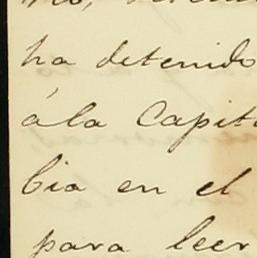 ha detenido
á la Capit
bia en el
para leer